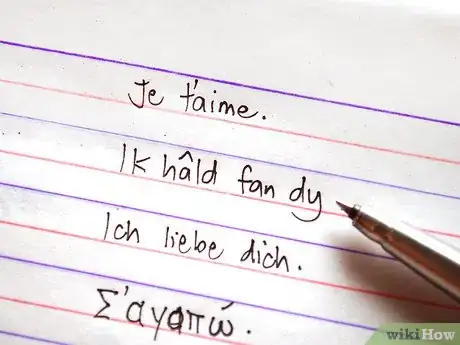 Je t'aime.
Ik hâld fan dy
Ich liebe dich.
Σ'αγαπώ.
wikiHow